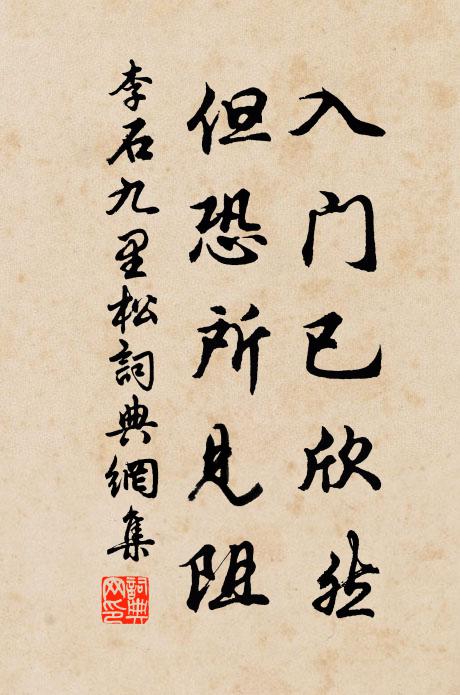 入门已欣然
但恐所见阻
李石九里松詞典網集
詞典网印